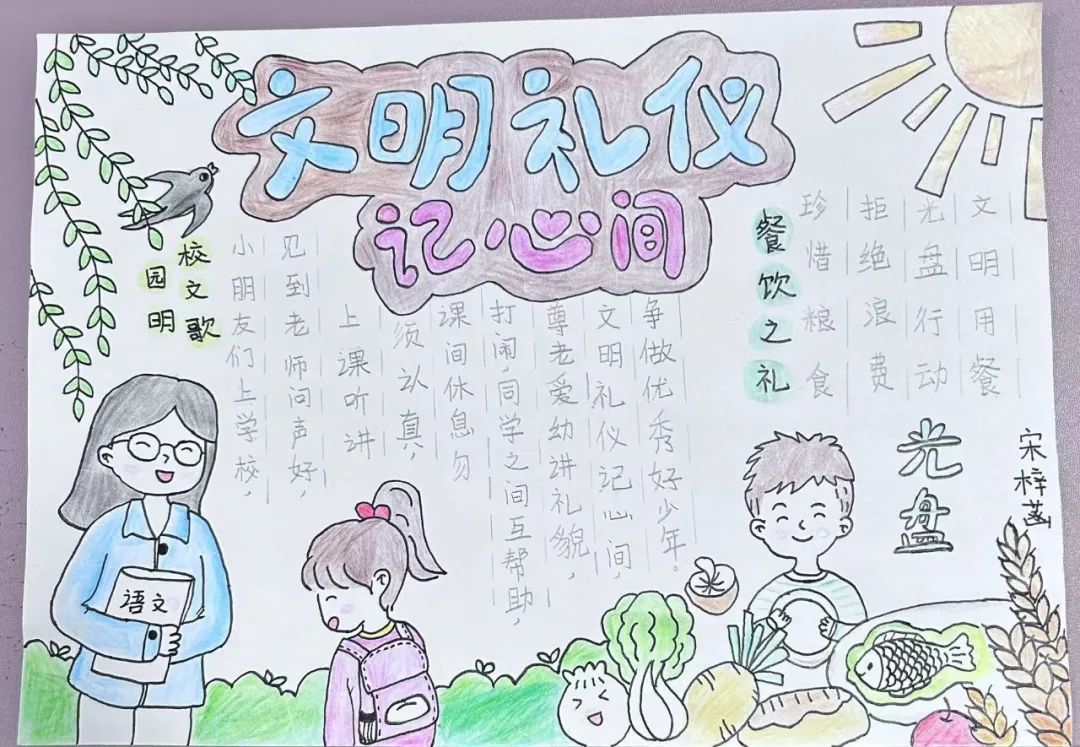 文明礼仪
记心间
校园文明歌
小朋友们上学校,
见到老师问声好,
上课听讲
须认真,
课间休息勿
打闹,同学之间互帮助,
尊老爱幼讲礼貌,
文明礼仪记心间,
争做优秀好少年。
餐饮之礼
珍惜粮食
拒绝浪费
光盘行动
文明用餐
光盘
宋梓菡
语文